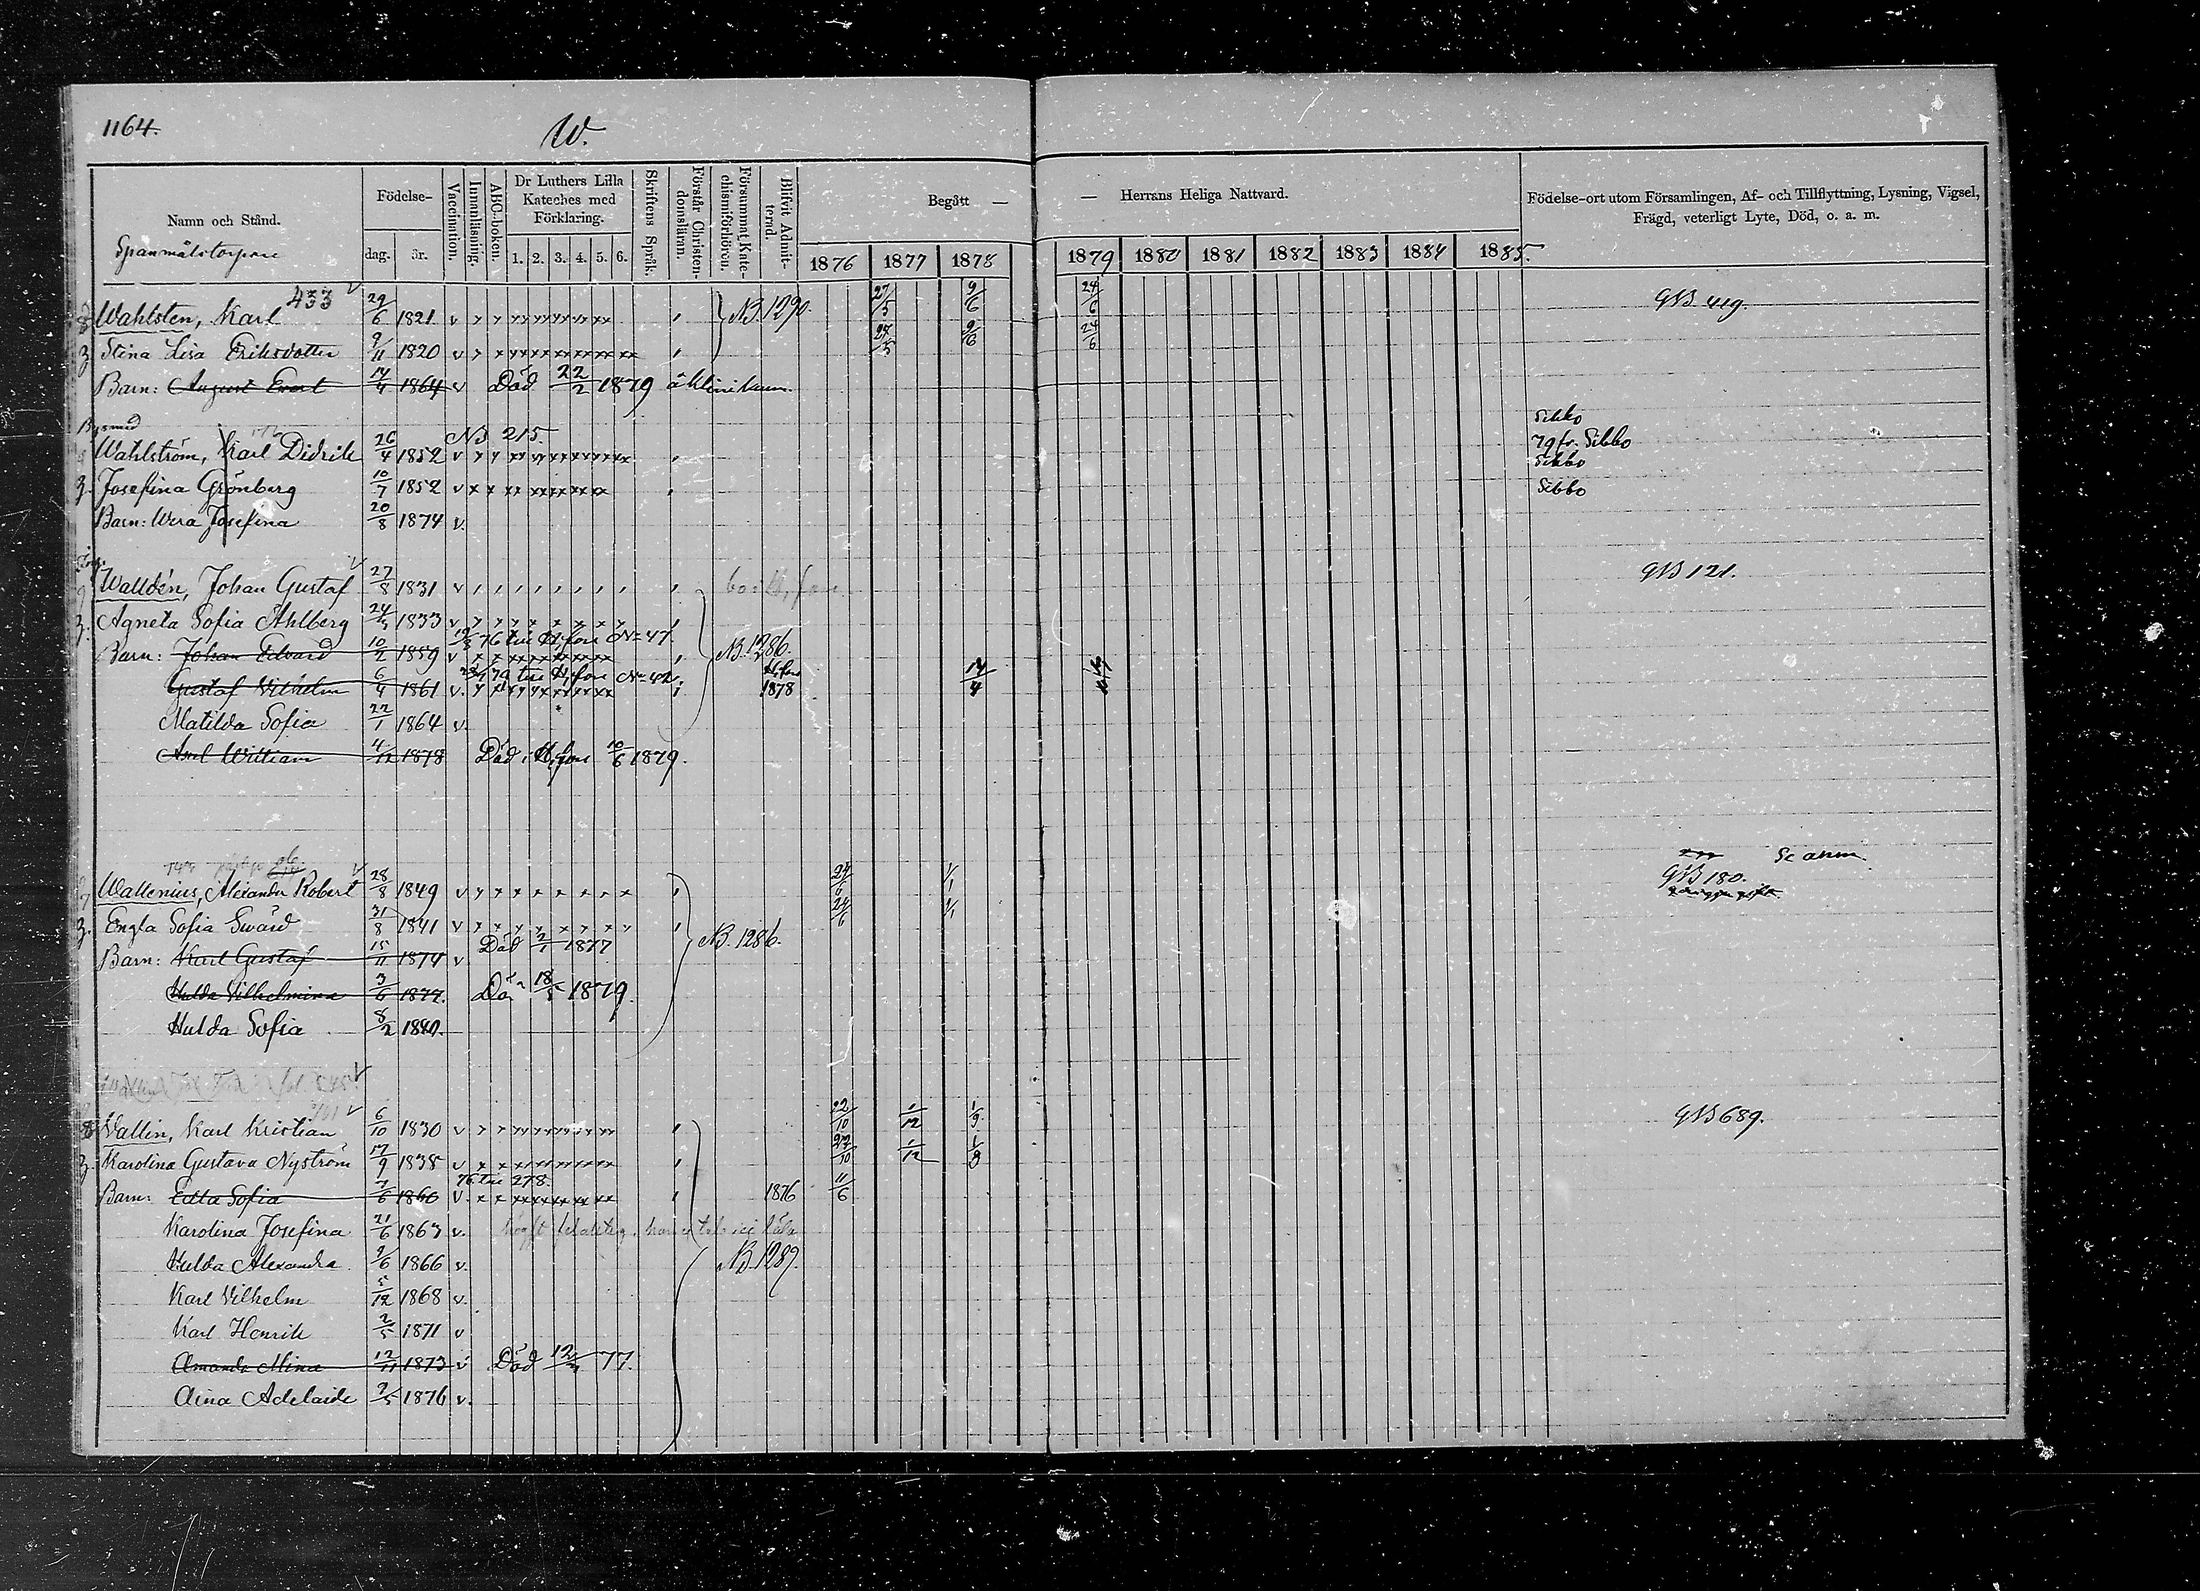 1164.
W.
Namn och Stånd.
Födelse-
dag.
år.
Vaccination.
Innanläsning.
ABC-boken.
Dr Luthers Lilla Kateches med Förklaring.
1. 2. 3. 4. 5. 6.
Skriftens Språk.
Förstår Christendomsläran.
Försummat Katechismiförhören.
Blifvit Admitterad.
Begått — — Herrans Heliga Nattvard.
1876 1877 1878 1879 1880 1881 1882 1883 1884 1885.
Födelse-ort utom Församlingen, Af- och Tillflyttning, Lysning, Vigsel,
Frägd, veterligt Lyte, Död, o. a. m.
433
Wahlsten, Karl 29/6 1821 v N.B. 1290. 27/5 9/6 24/6 GB 419.
Stina Lisa Eriksdotter 9/11 1820 v 27/5 9/6 24/6
Barn: August Evert 14/4 1864 v Död 22/2 1879 å klinikum.
Sibbo
Wahlström, Karl Didrik 26/4 1852 v NB 215. Sibbo
Sibbo
Josefina Grönberg 10/7 1852 v Sibbo
Barn: Wera Josefina 20/8 1874 v.
Walldén, Johan Gustaf 27/8 1831 v GB 121.
Agneta Sofia Ahlberg 1833 v
Barn: Johan Edvard 10/2 1859 v 76 till H:fors N=47. N.B. 1286.
Gustaf Vilhelm 6/4 1861 v. till H:fors H:fors 1878 14/4
Matilda Sofia 22/1 1864 v.
Axel William 1878 Död i H:fors 10/6 1879.
Wallenius, Alexander Robert 28/8 1849 v 24/6 1/1 GB 180.
Engla Sofia Swärd 31/8 1841 v 24/6 1/1
Barn: Karl Gustaf 15/11 1874 v Död 2/1 1877 N.B. 1286.
Hulda Vilhelmina 3/6 1877. Död 1879.
Hulda Sofia 8/2 1880.
Wallin, Karl Kristian 6/10 1830 v 22/10 1/12 1/9 GB 689.
Karolina Gustava Nyström 17/9 1838 v 22/10 1/12 1/9
Barn: Edla Sofia 7/6 1860 v. 76 till 278. 1876 11/6
Karolina Josefina 21/6 1863 v.
Hulda Alexandra 9/6 1866 v. N.B. 1289.
Karl Vilhelm 5/12 1868 v.
Karl Henrik 2/5 1871 v
Amanda Mina 12/11 1873 v Död 77.
Aina Adelaide 1876 v.